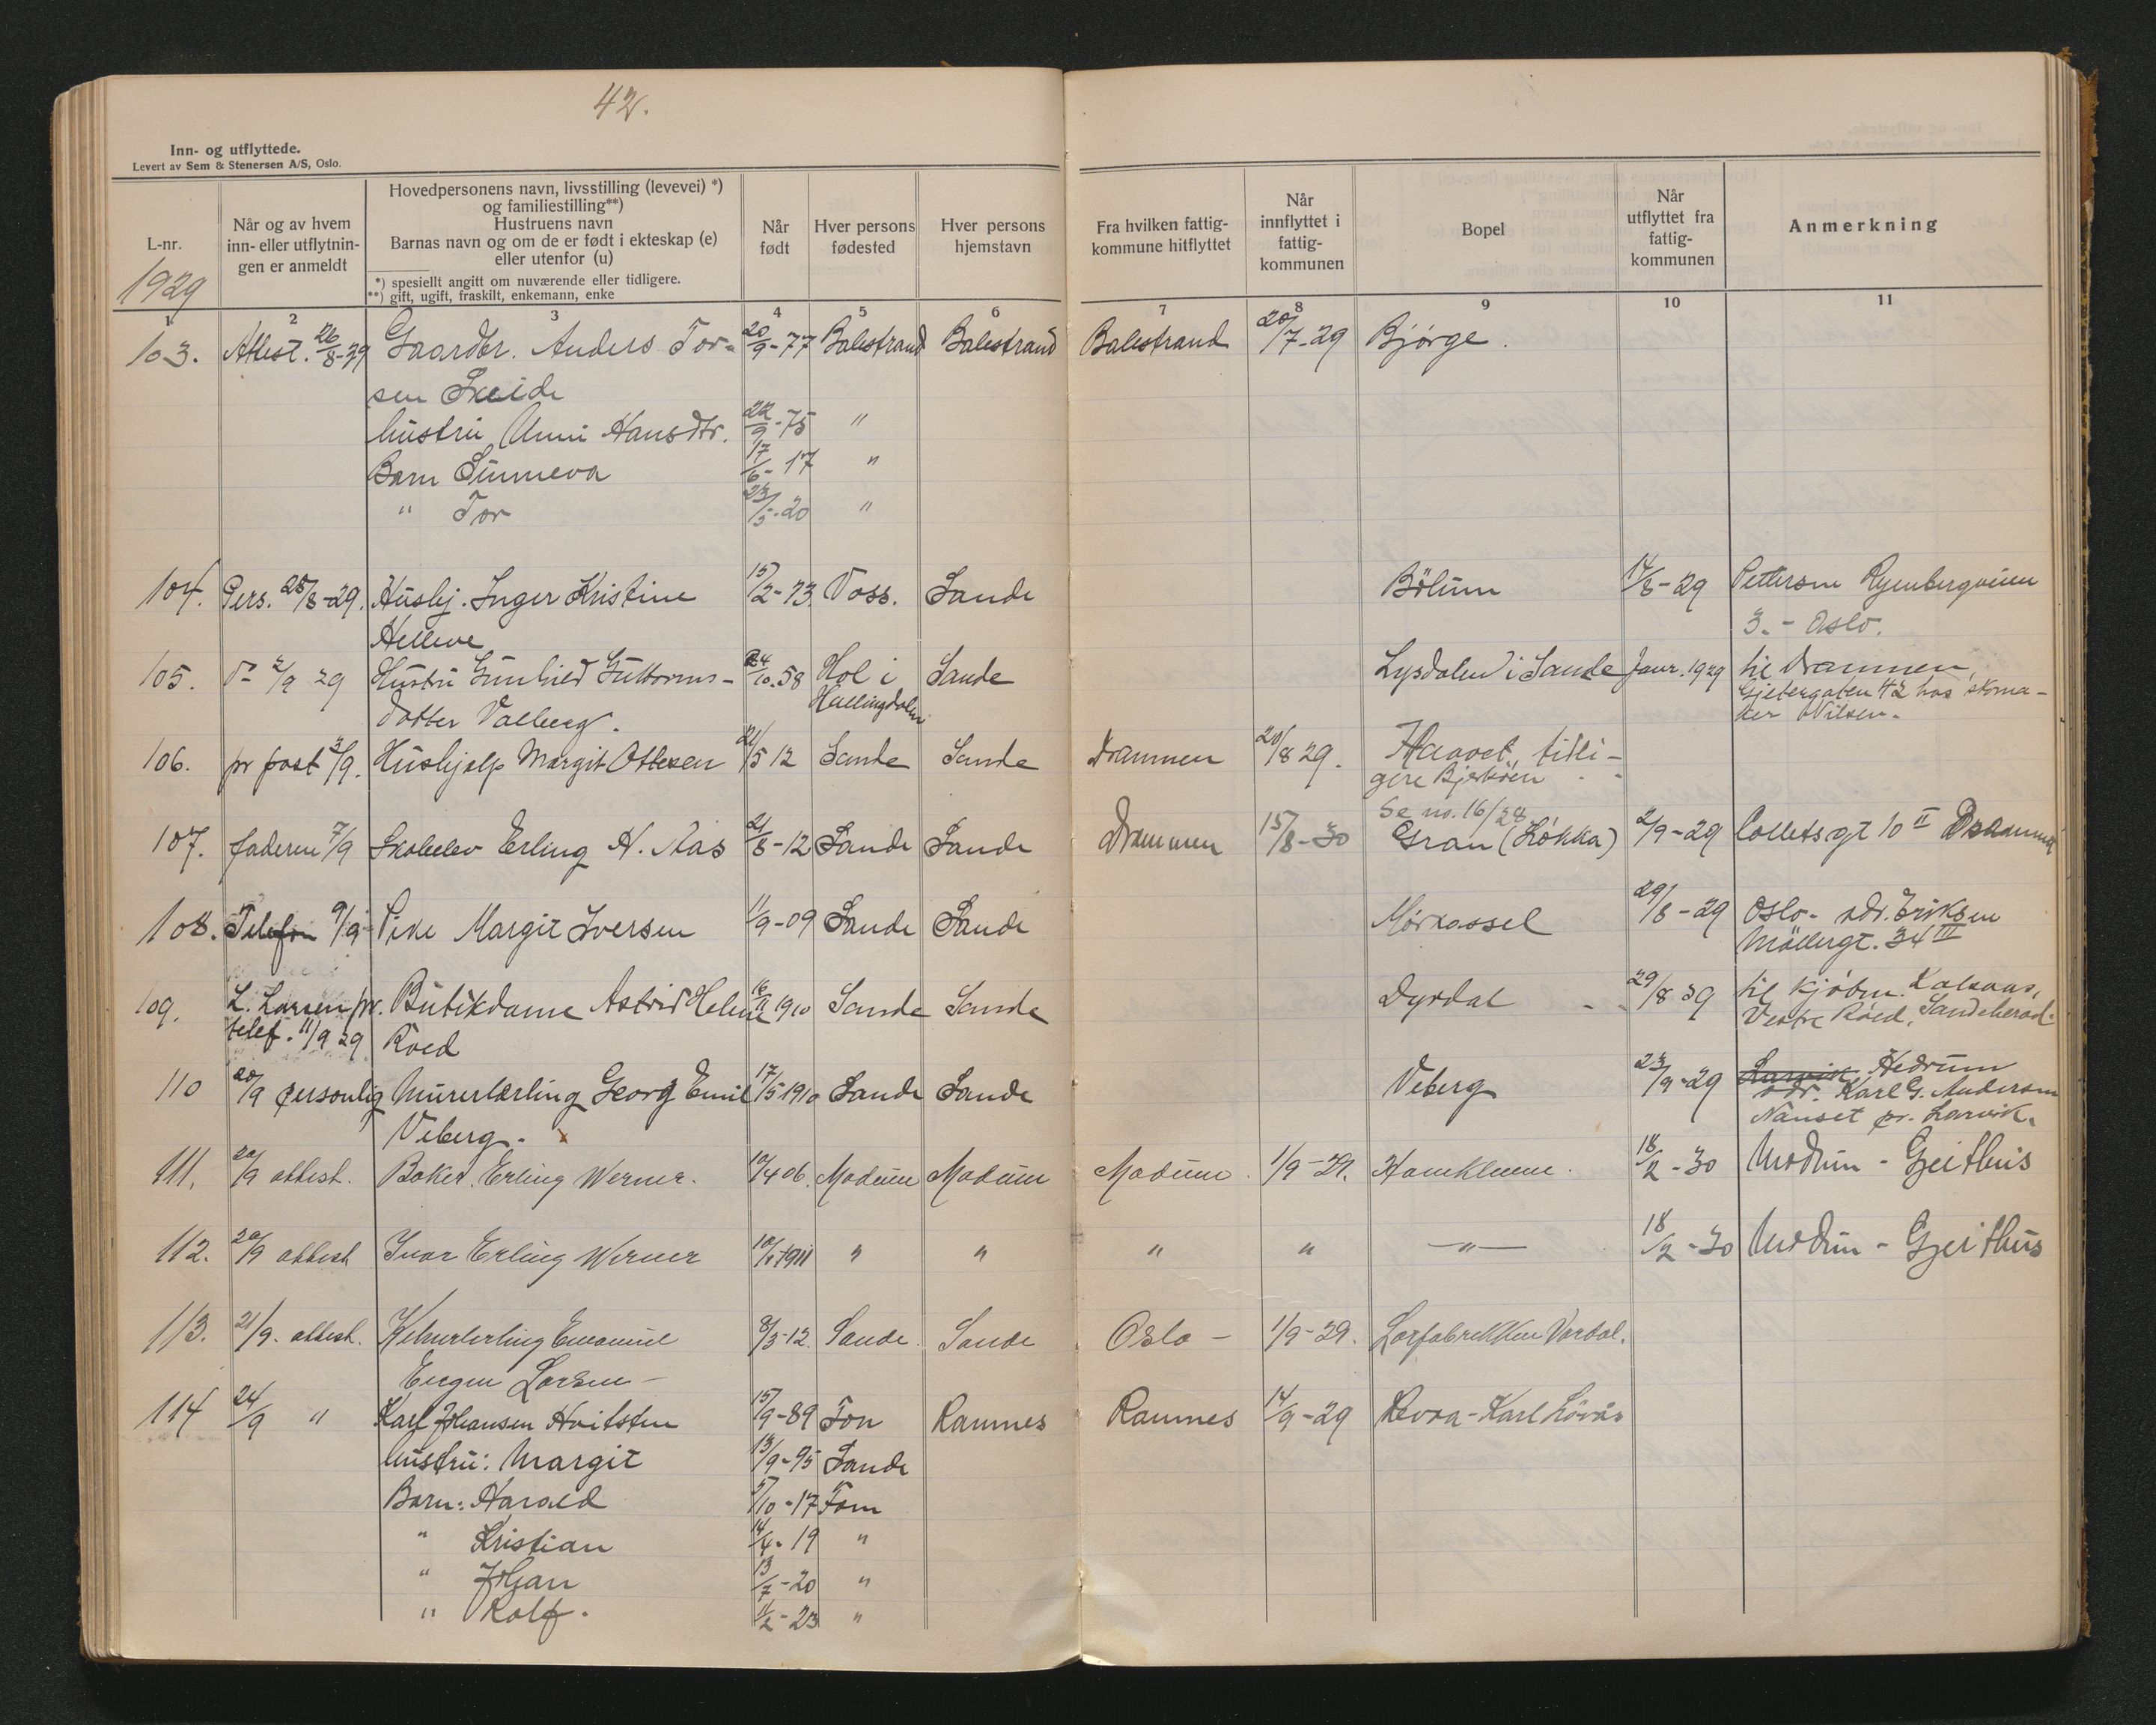 42.
Inn- og utflyttede.
Levert av Sem & Stenersen A/S, Oslo.
L-nr.
1929
Når og av hvem
inn- eller utflytnin-
gen er anmeldt
Hovedpersonens navn, livsstilling (levevei) *)
og familiestilling**)
Hustruens navn
Barnas navn og om de er født i ekteskap (e)
eller utenfor (u)
*) spesiellt angitt om nuværende eller tidligere.
**) gift, ugift, fraskilt, enkemann, enke
Når
født
Hver persons
fødested
Hver persons
hjemstavn
Fra hvilken fattig-
kommune hitflyttet
Når
innflyttet i
fattig-
kommunen
Bopel
Når
utflyttet fra
fattig-
kommunen
Anmerkning
1 2 3 4 5 6 7 8 9 10 11
103. Attest. 26/8-29 Gaardbr. Anders Tor- 20/9-77 Balestrand Balestrand Balestrand 20/7-29 Bjørge.
sen Skeide
hustru Unni Hansdtr. 22/9-75 "
Barn Sunneva 17/6-17 "
" Tor 23/5-20 "
104. Pers. 28/8-29. Hushj. Inger Kristine 15/2-73. Voss. Sande Bölum 14/8-29 Petterson
Helleve 3. - Oslo.
105. 2/9 29 Hustru Gunhild Guttorms- 24/10.58 Hol i Sande Lysdalen i Sande Janr. 1929 til Drammen,
dotter Valberg. Hallingdalen 42 hos skoma-
ker Nilsen.
106. pr post 3/9. Hushjelp Margit Ottesen 21/5 12 Sande Sande Drammen 20/8 29. Haavet, tidli-
gere Bjerkøen
Se no. 16/28
107. faderen 7/9 Skoleelev Erling H. Aas 21/8-12 Sande Sande Drammen 15/8-30 Gran (Løkka) 2/9-29 Colletsgt 10 II Drammen
108. Telefon 9/9 Pike Margit Iversen 11/9-09 Sande Sande Mørkassel 29/8-29 Oslo - adr. Eriksen
Möllergt. 34 III
109. L. Larsen pr. Butikdame Astrid Helene 16/11 1910 Sande Sande Dyrdal 29/8 29 til kjøbm. Kalsaas,
telef. 11/9 29 Røed Vestre Røed, Sandeherad.
110 20/9 personlig Murerlærling Georg Emil 17/5 1910 Sande Sande Veberg 23/9-29 Larvik Hedrum
Veberg. x adr. Karl G. Anderson
Nanset pr. Larvik.
111. 20/9 attest. Baker. Erling Werner. 10/4 06. Modum Modum Modum 1/9-29. Hanekleven. 18/2-30 Modum - Gjeithus
112. 20/9 attest Ivar Erling Werner 1911 " " " " -"- 18/2-30 Modum - Gjeithus
113. 21/9. attest. Emanuel 8/3-12. Sande Sande Oslo - 1/9-29. Larsen -
114 24/9 " Karl Johansen Hvitsten 15/9-89 Fon Ramnes Ramnes 14/9-29 Revaa - Karl Løvås
hustru: Margit 13/9-95 Sande
Barn: Harald 5/10-17 Fom
" Kristian 14/4-19 "
" Johan 13/7-20 "
" Rolf. 11/2-23 "